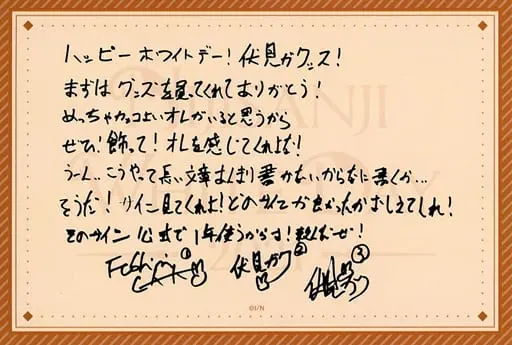 ハッピーホワイトデー！伏見ガクッス！
まずは グッズを買ってくれてありがとう！
めっちゃカッコよいオレがいると思うから
ぜひ！飾って！オレを感じてくれよな！
うーん…こうやって長い文章あんまり書かないからなに書くか…
そうだ！サイン見てくれよ！どのサインが良かったかおしえてくれ！
そのサイン 公式で1年使うからさ！頼むぜ！
① ② ③
伏見ガク
NIJISANJI
WHITE DAY
©I/N